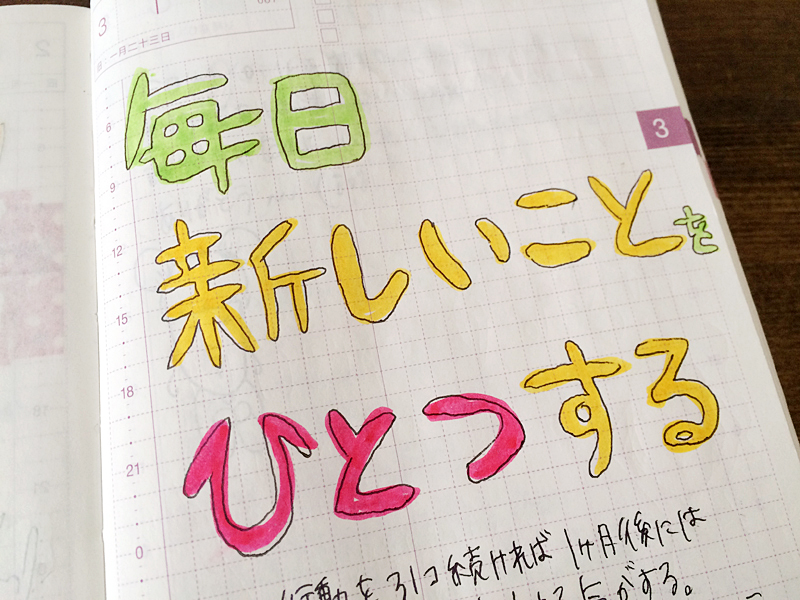 3
一月二十三日
6
9
12
15
18
21
0
3
毎日
新しいことを
ひとつする
続ければ1ヶ月後には
がする。